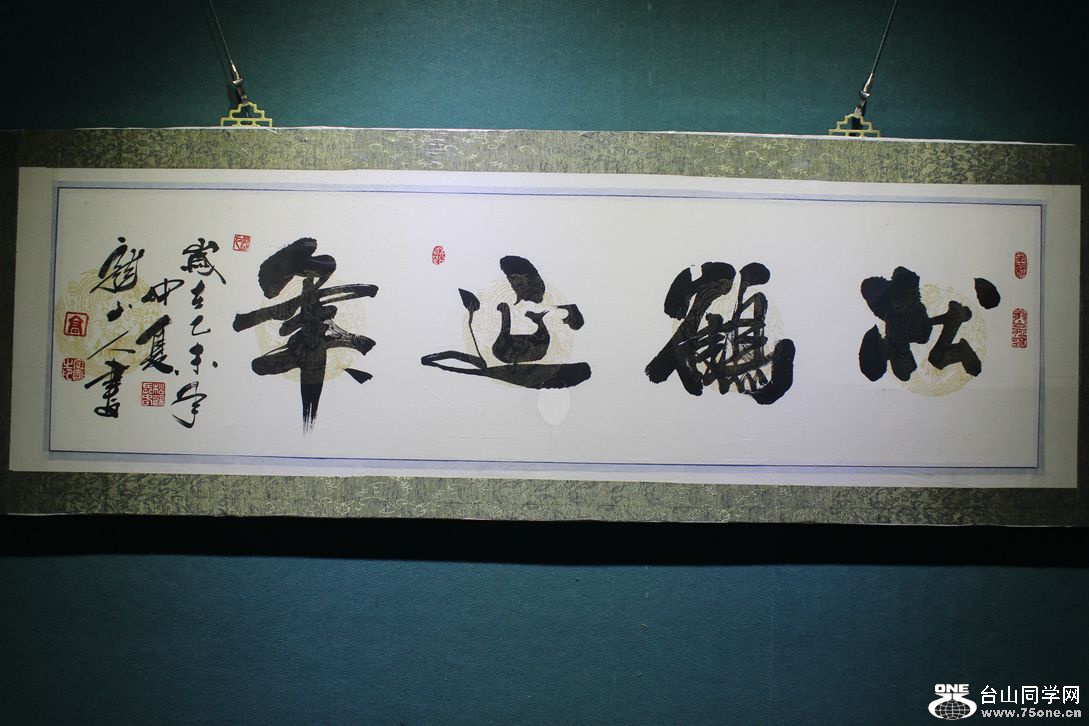 松鶴延年
歲在乙未年
仲夏
人書
ONE 台山同学网
www.75one.cn